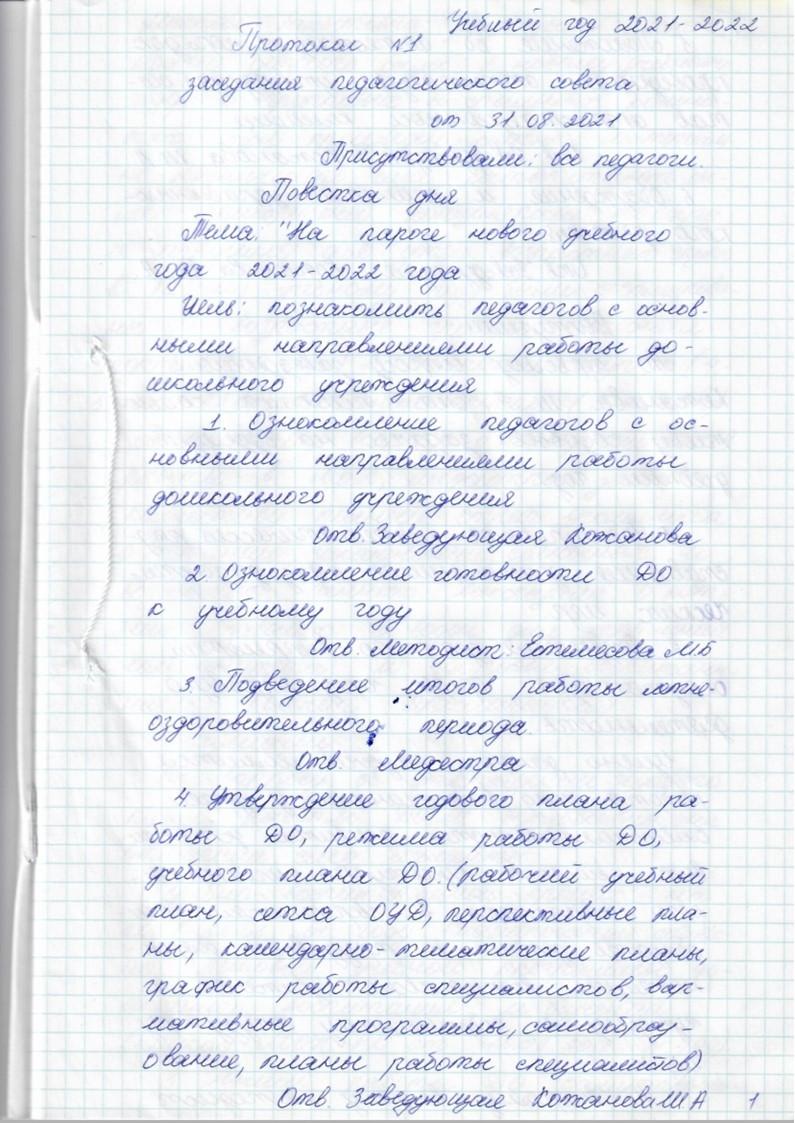 Учебный год 2021-2022
Протокол №1
заседания педагогического совета
от 31.08.2021
Присутствовали: все педагоги.
Повестка дня
Тема: "На пароге нового учебного
года 2021-2022 года
Цель: познакомить педагогов с основ-
ными направлениями работы до-
школьного учреждения
1. Ознокомление педагогов с ос-
новными направлениями работы
дошкольного учреждения
Отв. Заведующая Кожанова
2 Ознокомление готовности ДО
к учебному году
Отв. Методист: Естемесова М.Б
3. Подведение итогов работы летне-
оздоровительного периода
Отв. Медсестра
4. Утверждение годового плана ра-
боты ДО, режима работы ДО,
учебного плана ДО. (рабочий учебный
план, сетка ОУД, перспективные пла-
ны, календарно-тематические планы,
график работы специалистов, вар-
мативные программы, самообраз-
ование, планы работы специалистов)
Отв. Заведующая Кожанова Ш А 1